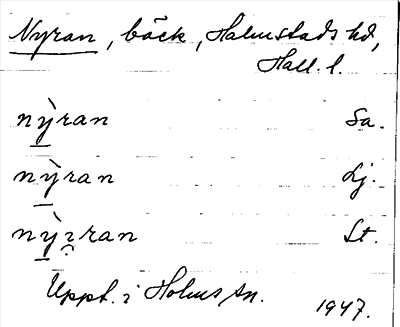 Nyran, bäck, Halmstads hd,
Hall. l.
nỳran Sa.
nỳran Lj.
nỳıran St.
Uppt. i Holms sn.
1947.